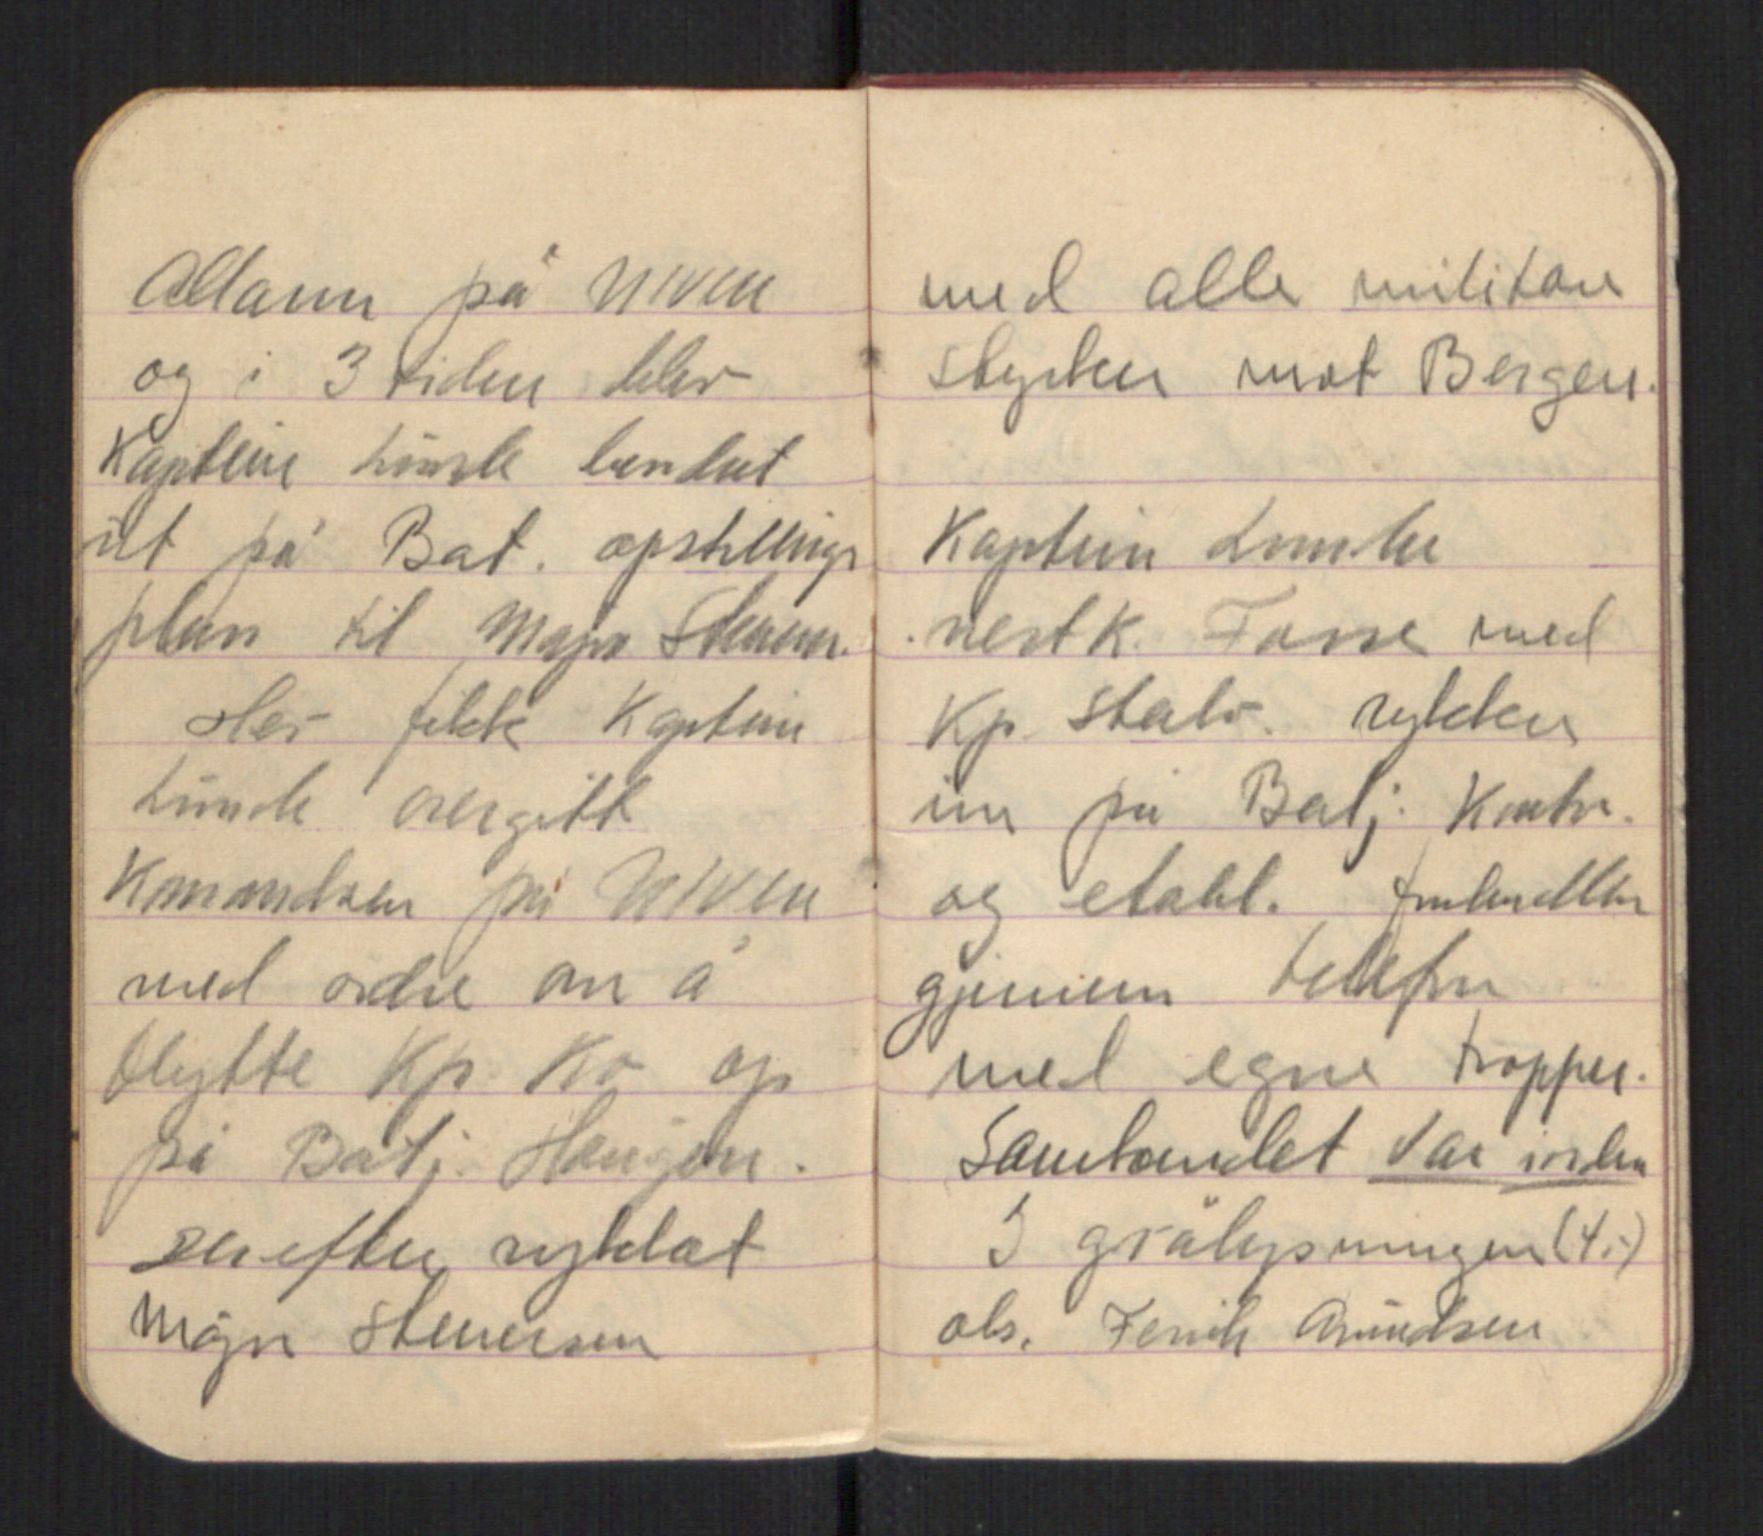 Allarm på NIVEN
og i 3 tiden blev
Kaptein Lunde beordret
ut på Bat. opstillings
plan til Major Stenersen.
Her fikk Kaptein
Lunde overgitt
Komandoen på NIVEN
med ordre om å
flytte Kp. Ko op
på Batj. Haugen.
Derefter rykket
Major Stenersen
med alle militære
stycker mot Bergen.
Kaptein Lunde
nestk. Fosse med
Kp. stab. rykker
inn på Batj. Kontor.
og etabl.
gjennem telefon
med egne tropper.
Sambandet var iorden
I grålysningen (4.-)
obs. Fenrik Amundsen